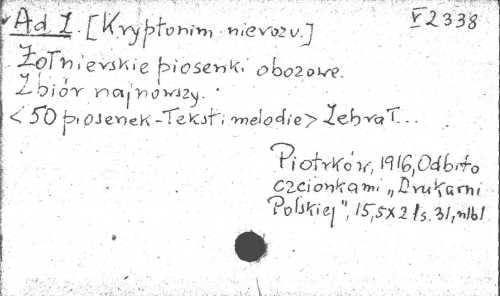 Ad Z. [Kryptonim nierozw.] V 2338
Żołnierskie piosenki obozowe.
Zbiór najnowszy.
<50 piosenek - Tekst i melodie> Zebrał...
Piotrków, 1916, Odbito
czcionkami „Drukarni
Polskiej", 15,5x21 s. 31, nlb1